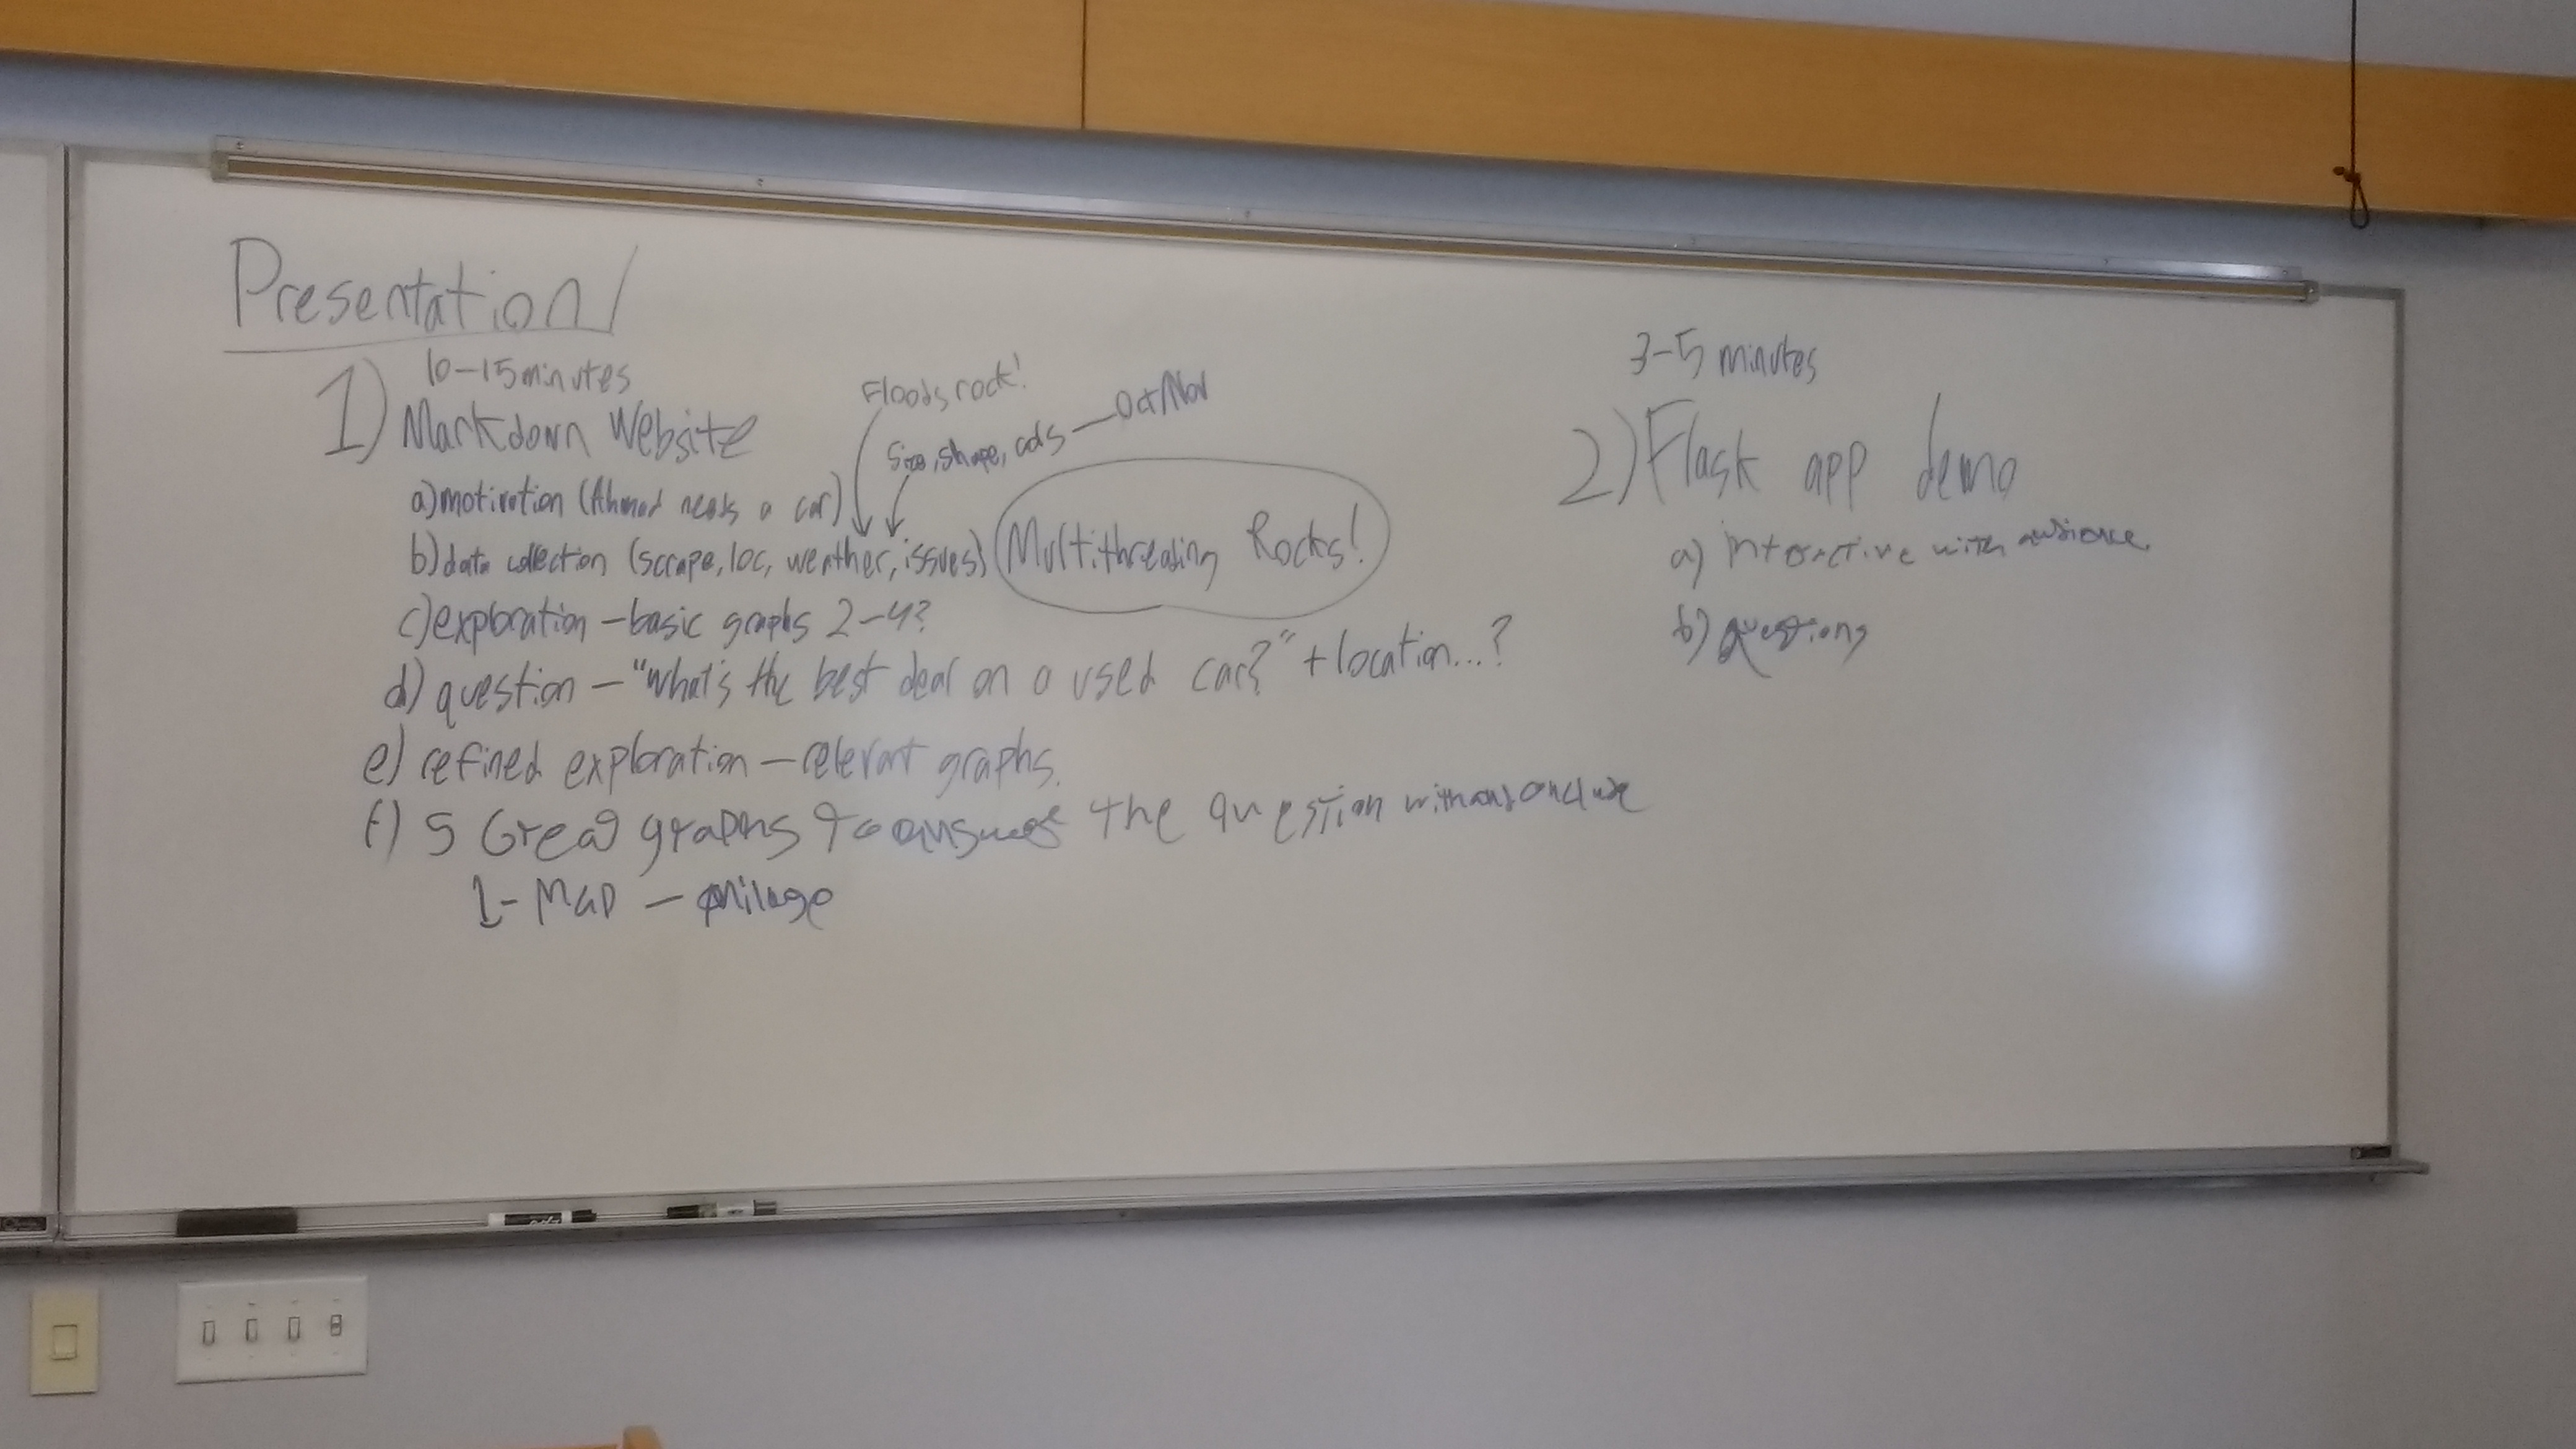 Presentation
10-15 minutes
1) Markdown Website
Floods rock!
Size, shape, — Oct/Nov
a) motivation (Ahmad needs a car)
b) data collection (scrape, loc, weather, issues) Multithreading Rocks!
c) exploration - basic graphs 2-4?
d) question - "What's the best deal on a used car?" + location...?
e) refined exploration - relevant graphs.
f) 5 Great graphs to answer the question
1- Map - milage
3-5 minutes
2) Flask app demo
a) interactive with audience
b) questions